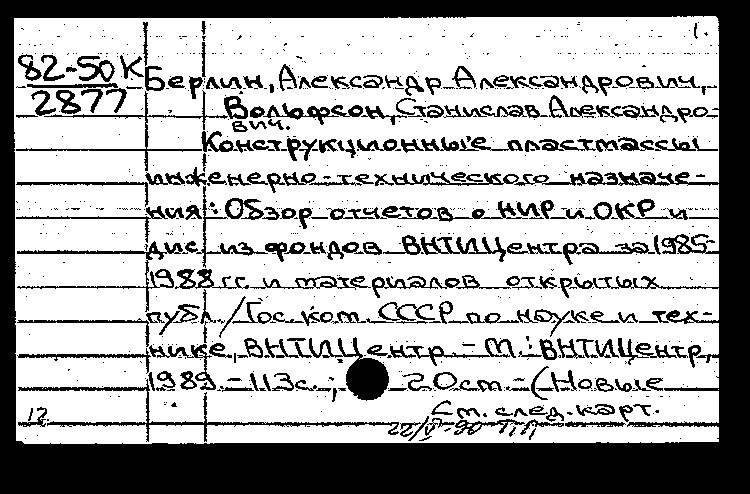 1.
82-50К
2877
Берлин, Александр Александрович,
Вольфсон, Станислав Александро-
вич.
Конструкционные пластмассы
инженерно-технического назначе-
ния: Обзор отчетов о НИР и ОКР и
дис. из фондов ВНТИЦентра за 1985-
1988 гг. и материалов открытых
публ. / Гос. ком. СССР по науке и тех-
нике, ВНТИЦентр. - М.: ВНТИЦентр,
1989. - 113с.; 20см. - (Новые
См. след. карт.
12
22/V-90